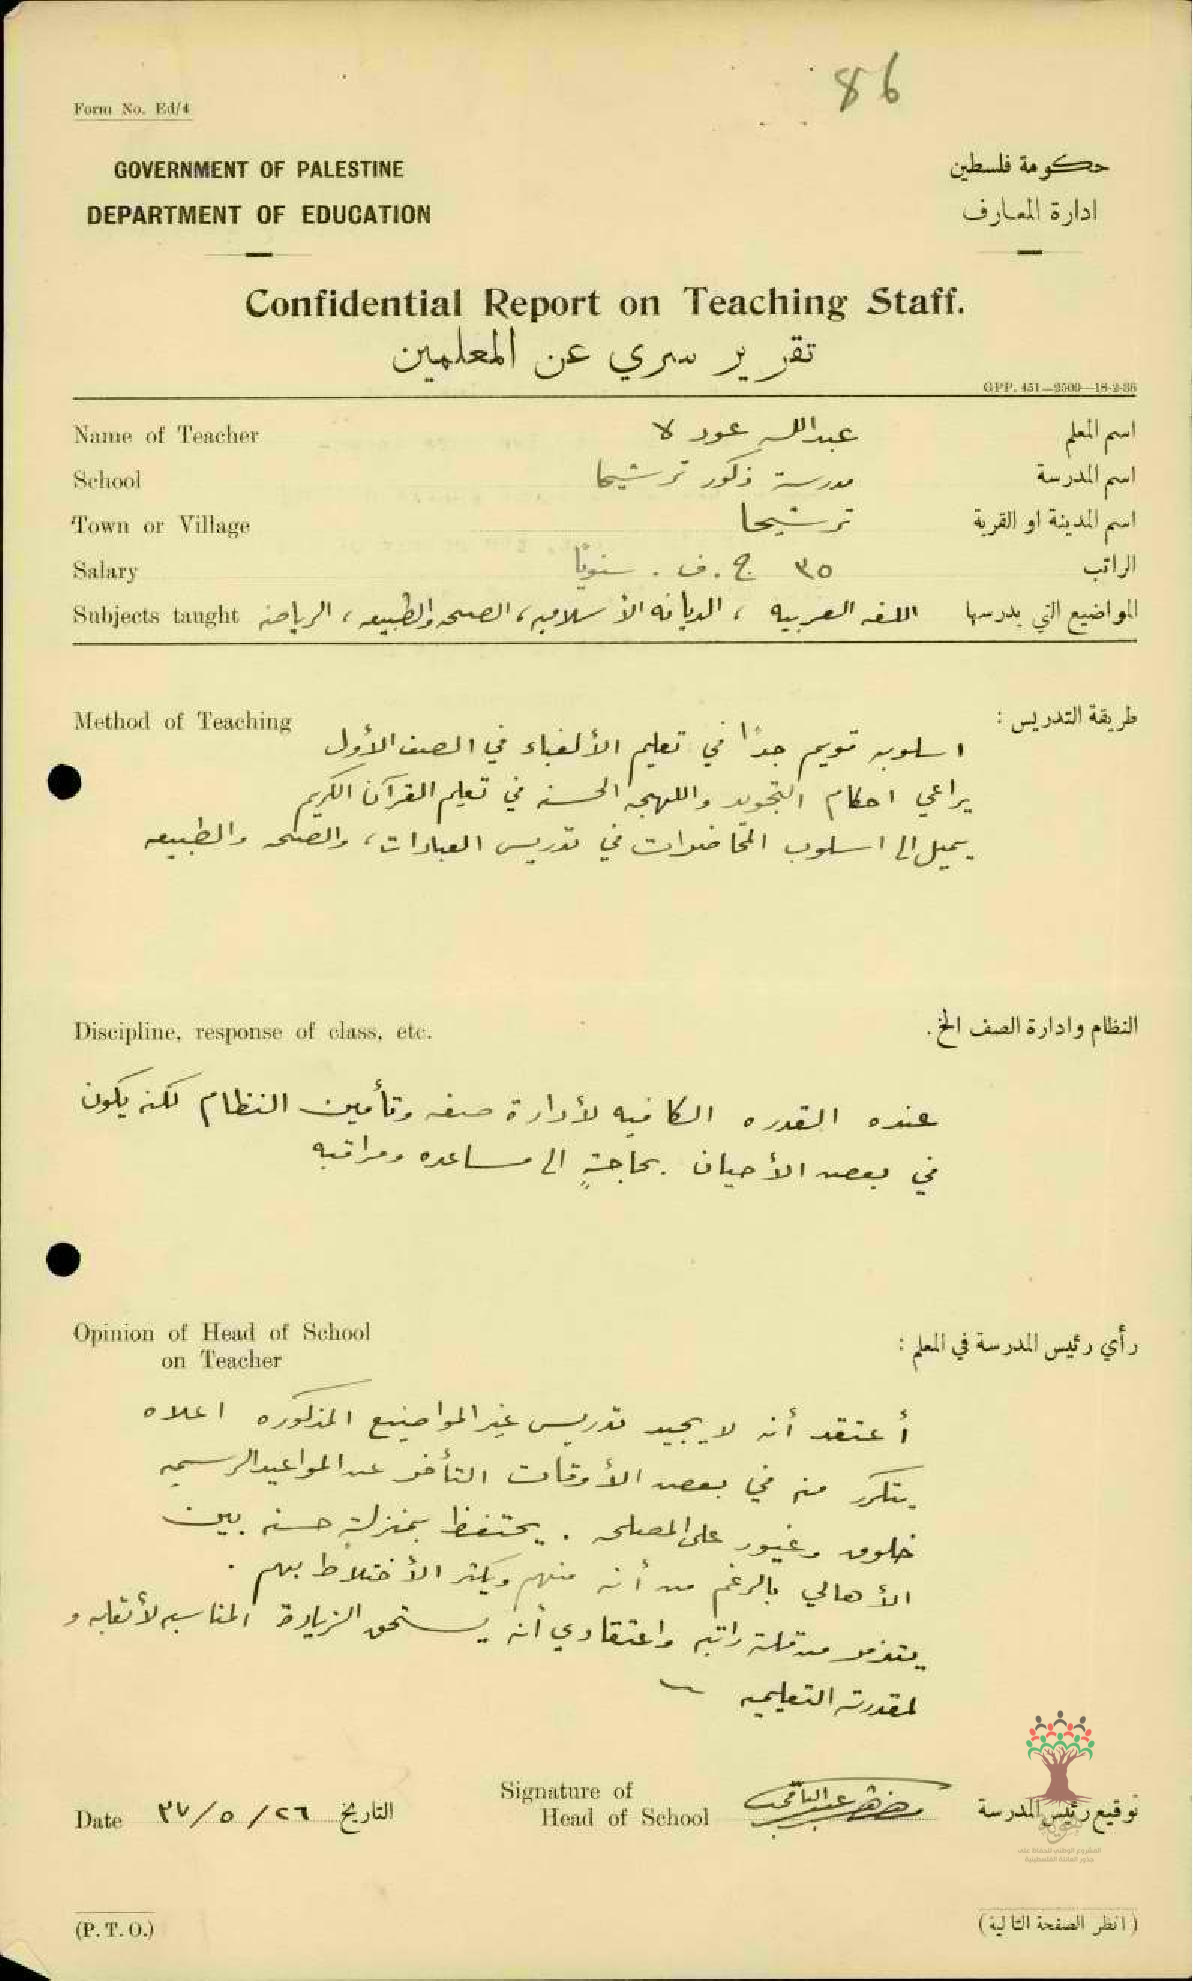 86
Form No. Ed/4
GOVERNMENT OF PALESTINE
حكومة فلسطين
DEPARTMENT OF EDUCATION
ادارة المعارف
Confidential Report on Teaching Staff.
تقرير سري عن المعلمين
GPP. 451—2500—18-2-36
Name of Teacher عبدالله عود لا اسم المعلم
School مدرسة ذكور ترشيحا اسم المدرسة
Town or Village ترشيحا اسم المدينة او القرية
Salary ٣٥ ج . ف . سنويًا الراتب
Subjects taught اللغه العربيه ، الديانه الأسلاميه ، الصحه والطبيعه ، الرياضه المواضيع التي يدرسها
Method of Teaching طريقة التدريس :
اسلوبه قويم جدًا في تعليم الألفباء في الصف الأول
يراعي احكام التجويد واللهجه الحسنه في تعليم القرآن الكريم
يميل الى اسلوب المحاضرات في تدريس العبادات ، والصحه والطبيعه
Discipline, response of class, etc. النظام وادارة الصف الخ .
عنده القدره الكافيه لأدارة صفه وتأمين النظام لكنه يكون
في بعض الأحيان بحاجةٍ الى مساعده ومراقبه
Opinion of Head of School
on Teacher
رأي رئيس المدرسة في المعلم :
أعتقد أنه لا يجيد تدريس غير المواضيع المذكوره اعلاه
يتكرر منه في بعض الأوقات التأخر عن المواعيد الرسميه
خلوق وغيور على المصلحه . يحتفظ بمنزلةٍ حسنه بين
الأهالي بالرغم من أنه منهم ويكثر الأختلاط بهم .
يتذمر من قلة راتبه واعتقادي أنه يستحق الزيادة المناسبه لأتعابه و
لمقدرته التعليميه
Date ٢٦ / ٥ / ٣٧ التاريخ
Signature of
Head of School
توقيع رئيس المدرسة
هوية
المشروع الوطني للحفاظ على
جذور العائلة الفلسطينية
(P. T. O.)
(انظر الصفحة التالية)